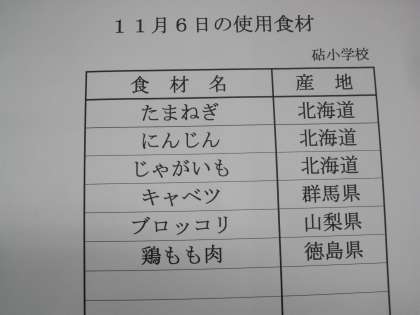 １１月６日の使用食材
砧小学校
食　材　名　産　地
たまねぎ　北海道
にんじん　北海道
じゃがいも　北海道
キャベツ　群馬県
ブロッコリ　山梨県
鶏もも肉　徳島県